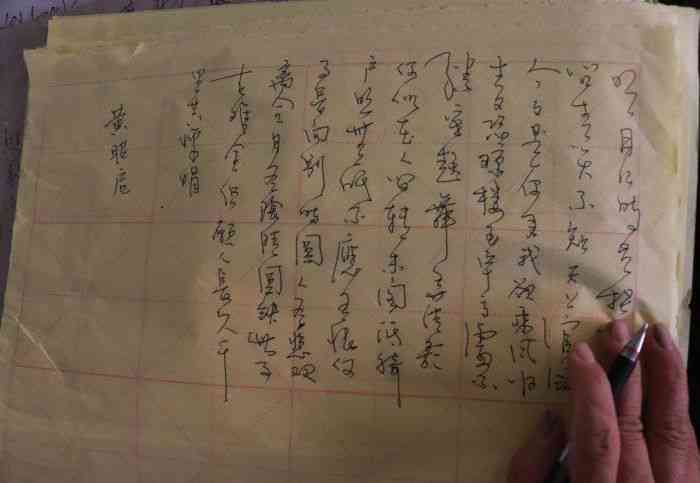 明月几時有把
问青天不知天上宫阙
今夕是何年我欲乘风归
去又恐琼楼玉宇高處不
勝寒起舞弄清影
何似在人间转朱阁低绮
户照无眠不應有恨何
事長向别時圓人有悲欢
离合月有陰晴圓缺此事
古难全但願人長久千
里共婵娟
黄昭